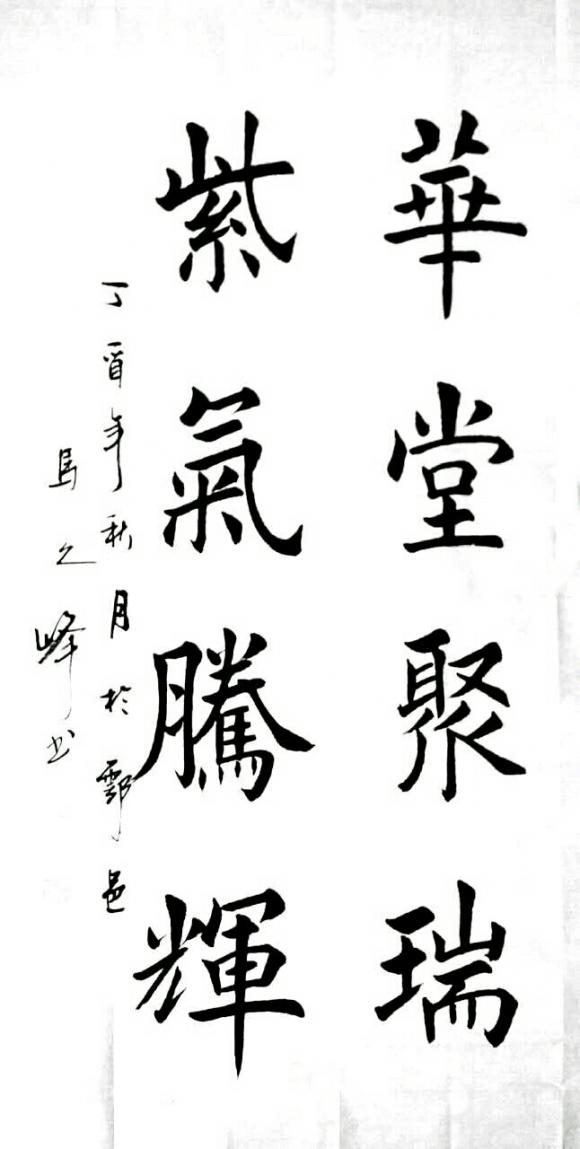 華堂聚瑞
紫氣騰輝
丁酉年秋月於鄠邑
馬之峰書